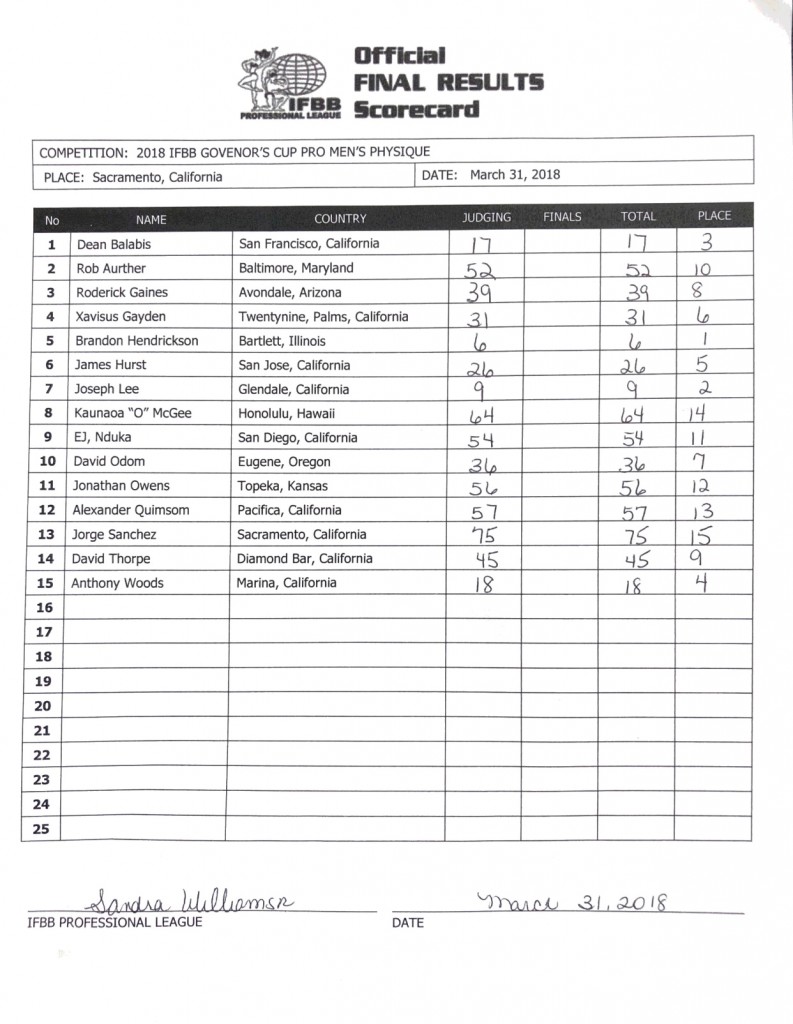 Official
FINAL RESULTS
Scorecard
IFBB
PROFESSIONAL LEAGUE
COMPETITION: 2018 IFBB GOVENOR'S CUP PRO MEN'S PHYSIQUE
PLACE: Sacramento, California DATE: March 31, 2018
No NAME COUNTRY JUDGING FINALS TOTAL PLACE
1 Dean Balabis San Francisco, California 17 17 3
2 Rob Aurther Baltimore, Maryland 52 52 10
3 Roderick Gaines Avondale, Arizona 39 39 8
4 Xavisus Gayden Twentynine, Palms, California 31 31 6
5 Brandon Hendrickson Bartlett, Illinois 6 6 1
6 James Hurst San Jose, California 26 26 5
7 Joseph Lee Glendale, California 9 9 2
8 Kaunaoa "O" McGee Honolulu, Hawaii 64 64 14
9 EJ, Nduka San Diego, California 54 54 11
10 David Odom Eugene, Oregon 36 36 7
11 Jonathan Owens Topeka, Kansas 56 56 12
12 Alexander Quimsom Pacifica, California 57 57 13
13 Jorge Sanchez Sacramento, California 75 75 15
14 David Thorpe Diamond Bar, California 45 45 9
15 Anthony Woods Marina, California 18 18 4
16
17
18
19
20
21
22
23
24
25
Sandra Williamson March 31, 2018
IFBB PROFESSIONAL LEAGUE DATE